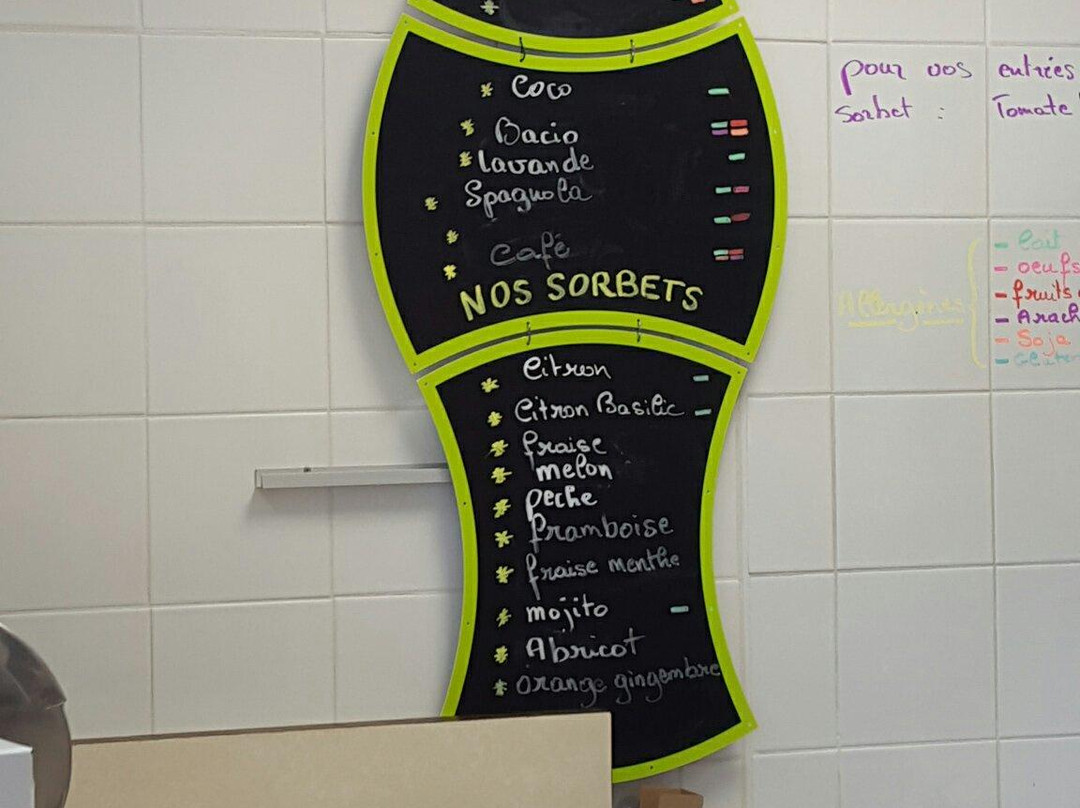 Coco
Bacio
lavande
Spagnola
Café
NOS SORBETS
Citron
Citron Basilic
fraise
melon
peche
framboise
fraise menthe
mojito
Abricot
orange gingembre
pour vos entrées
Sorbet : Tomate
Allergènes
- lait
- oeufs
- fruits
- Arach
- Soja
- Gluten